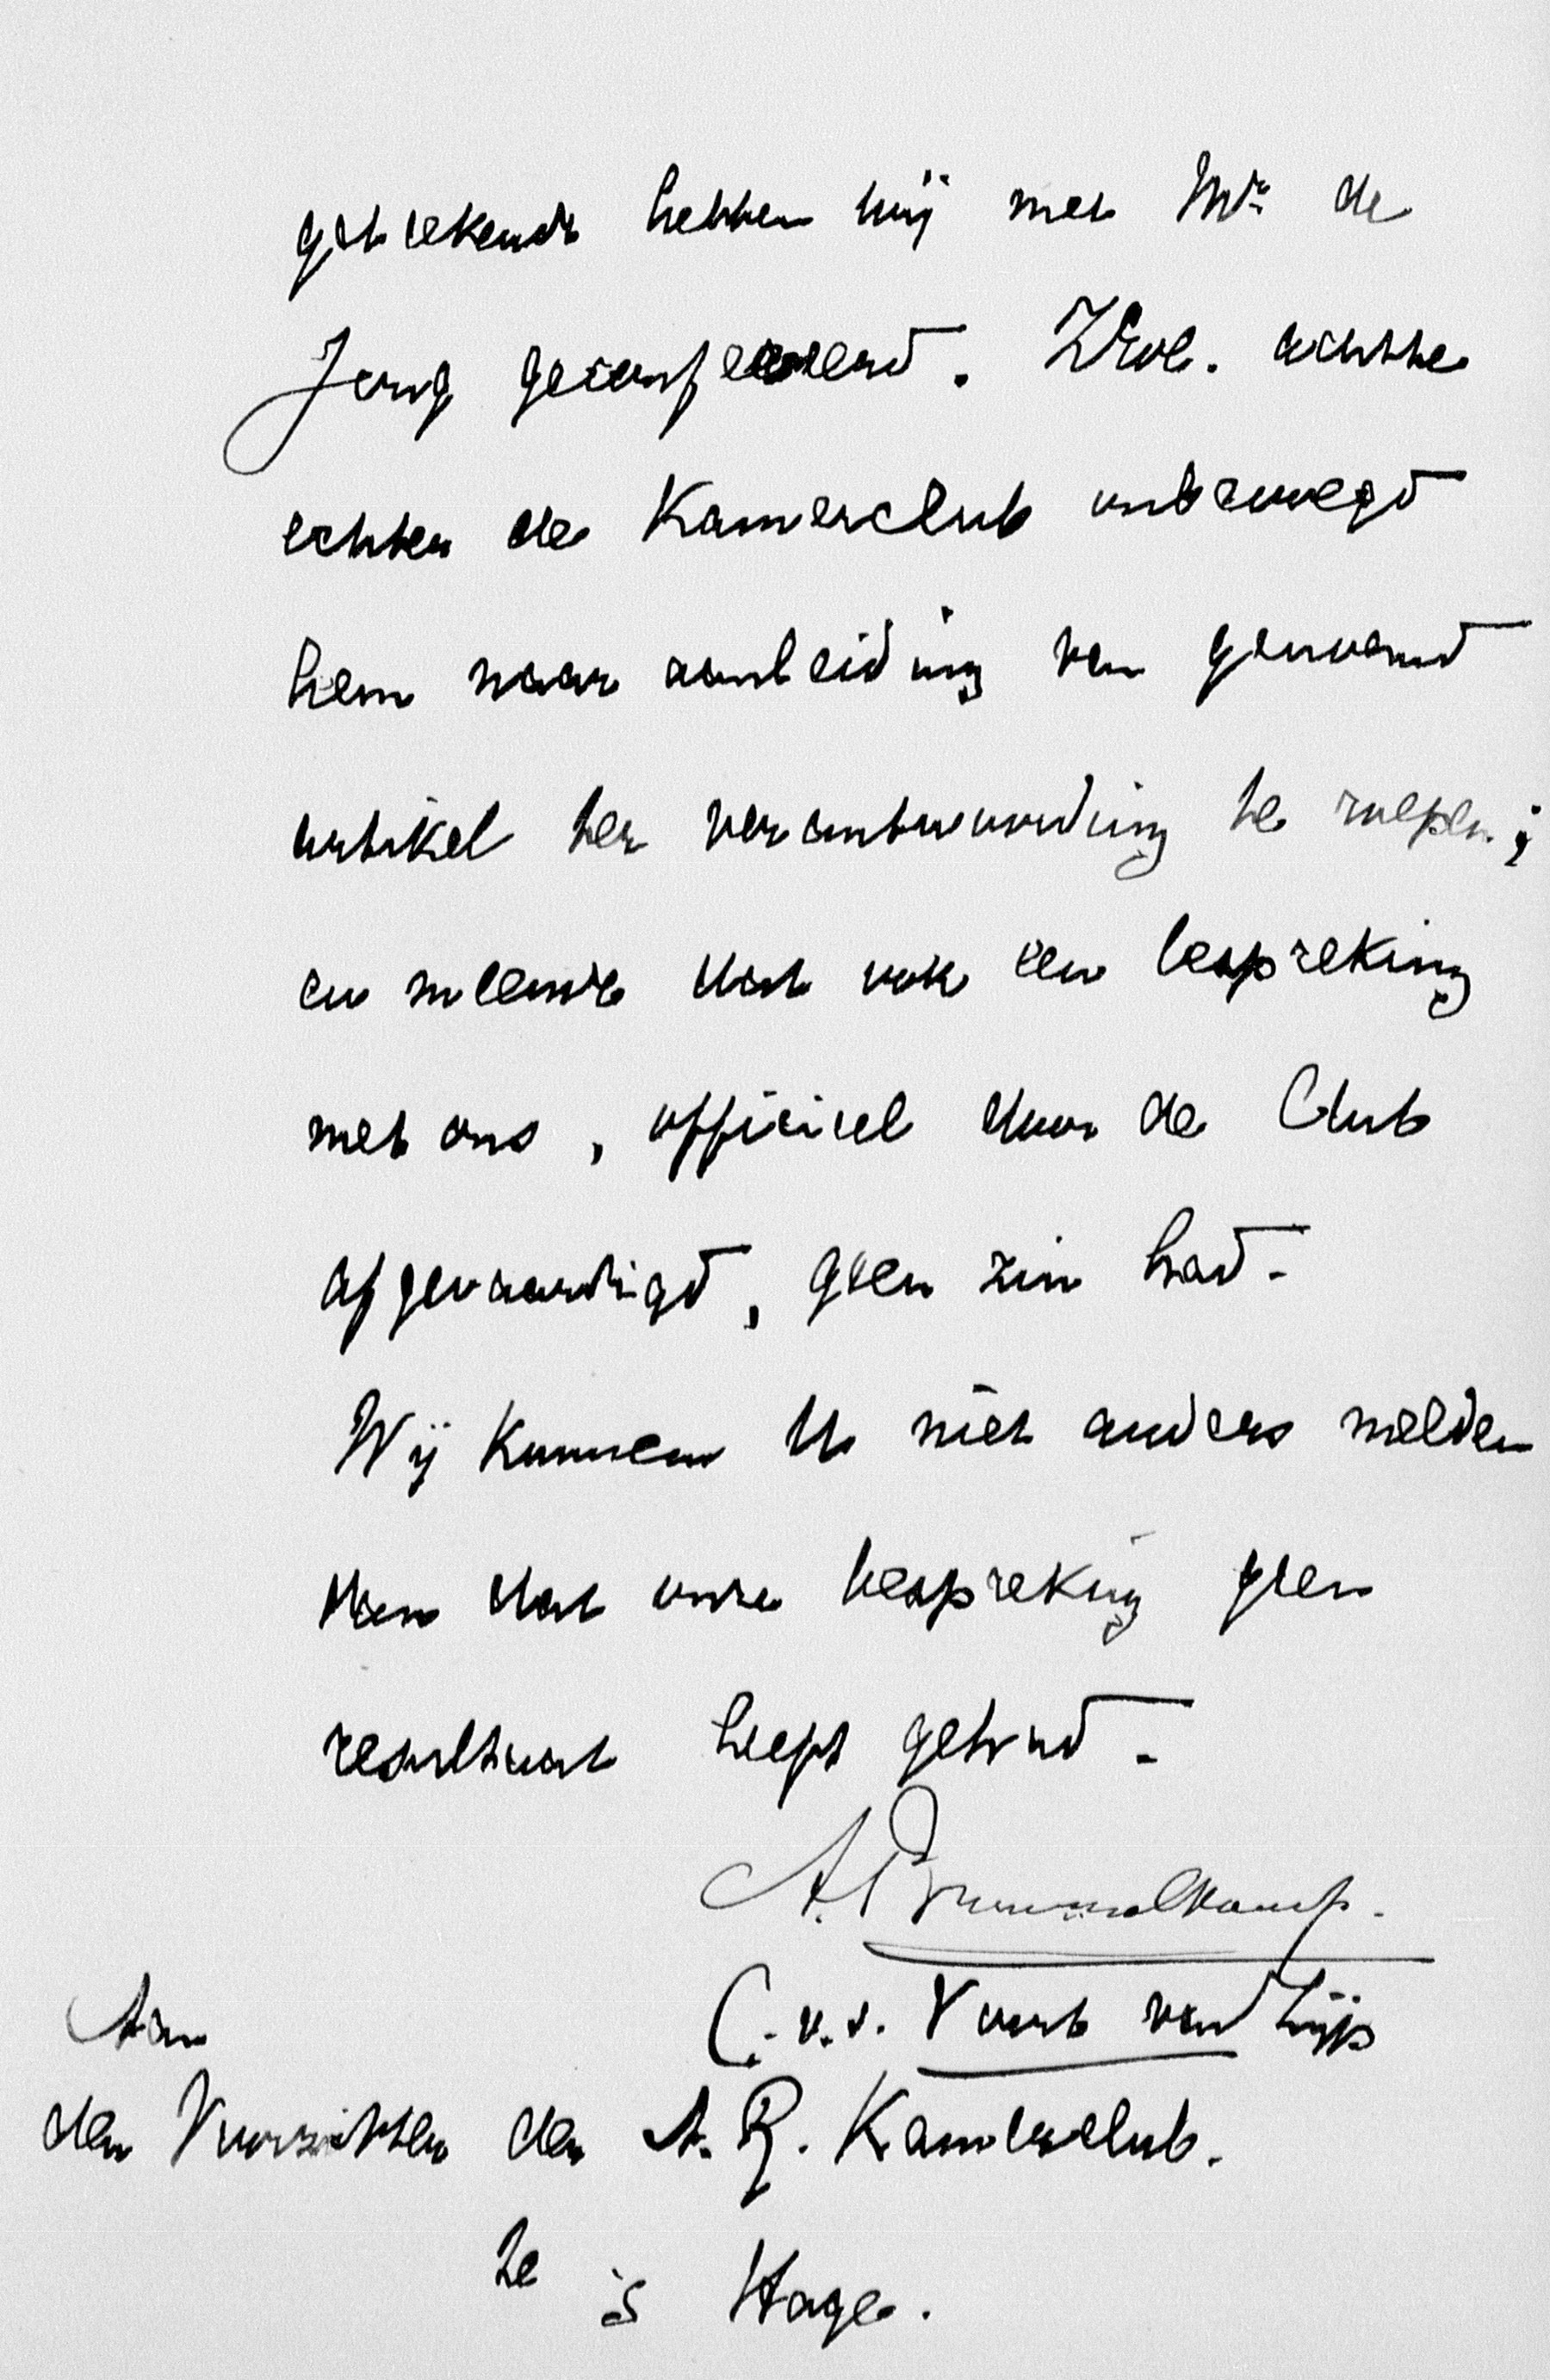 geteekende hebben wij met Mr. de
Jong geconfereerd. ZEd. achtte
echter de Kamerclub onbevoegd
hem naar aanleiding van genoemd
artikel ter verantwoording te roepen;
en meende dat ook een bespreking
met ons, officieel door de Club
afgevaardigd, geen zin had.
Wij kunnen U niet anders melden
dan dat onze bespreking geen
resultaat heeft gehad.
A. Brummelkamp.
C. v. d. Voort van Zijp
Aan
den Voorzitter der A. R. Kamerclub.
te 's Hage.